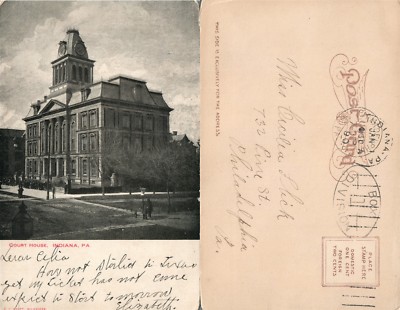 COURT HOUSE, INDIANA, PA
Dear Celia
Have not Started to Texas
yet my ticket has not come
expect to Start tomorrow
Elizabeth.
THIS SIDE IS EXCLUSIVELY FOR THE ADDRESS
Miss
732 Pine St.
Philadelphia
Pa.
Post Card
INDIANA, PA
PLACE
STAMP HERE
DOMESTIC
ONE CENT
FOREIGN
TWO CENTS